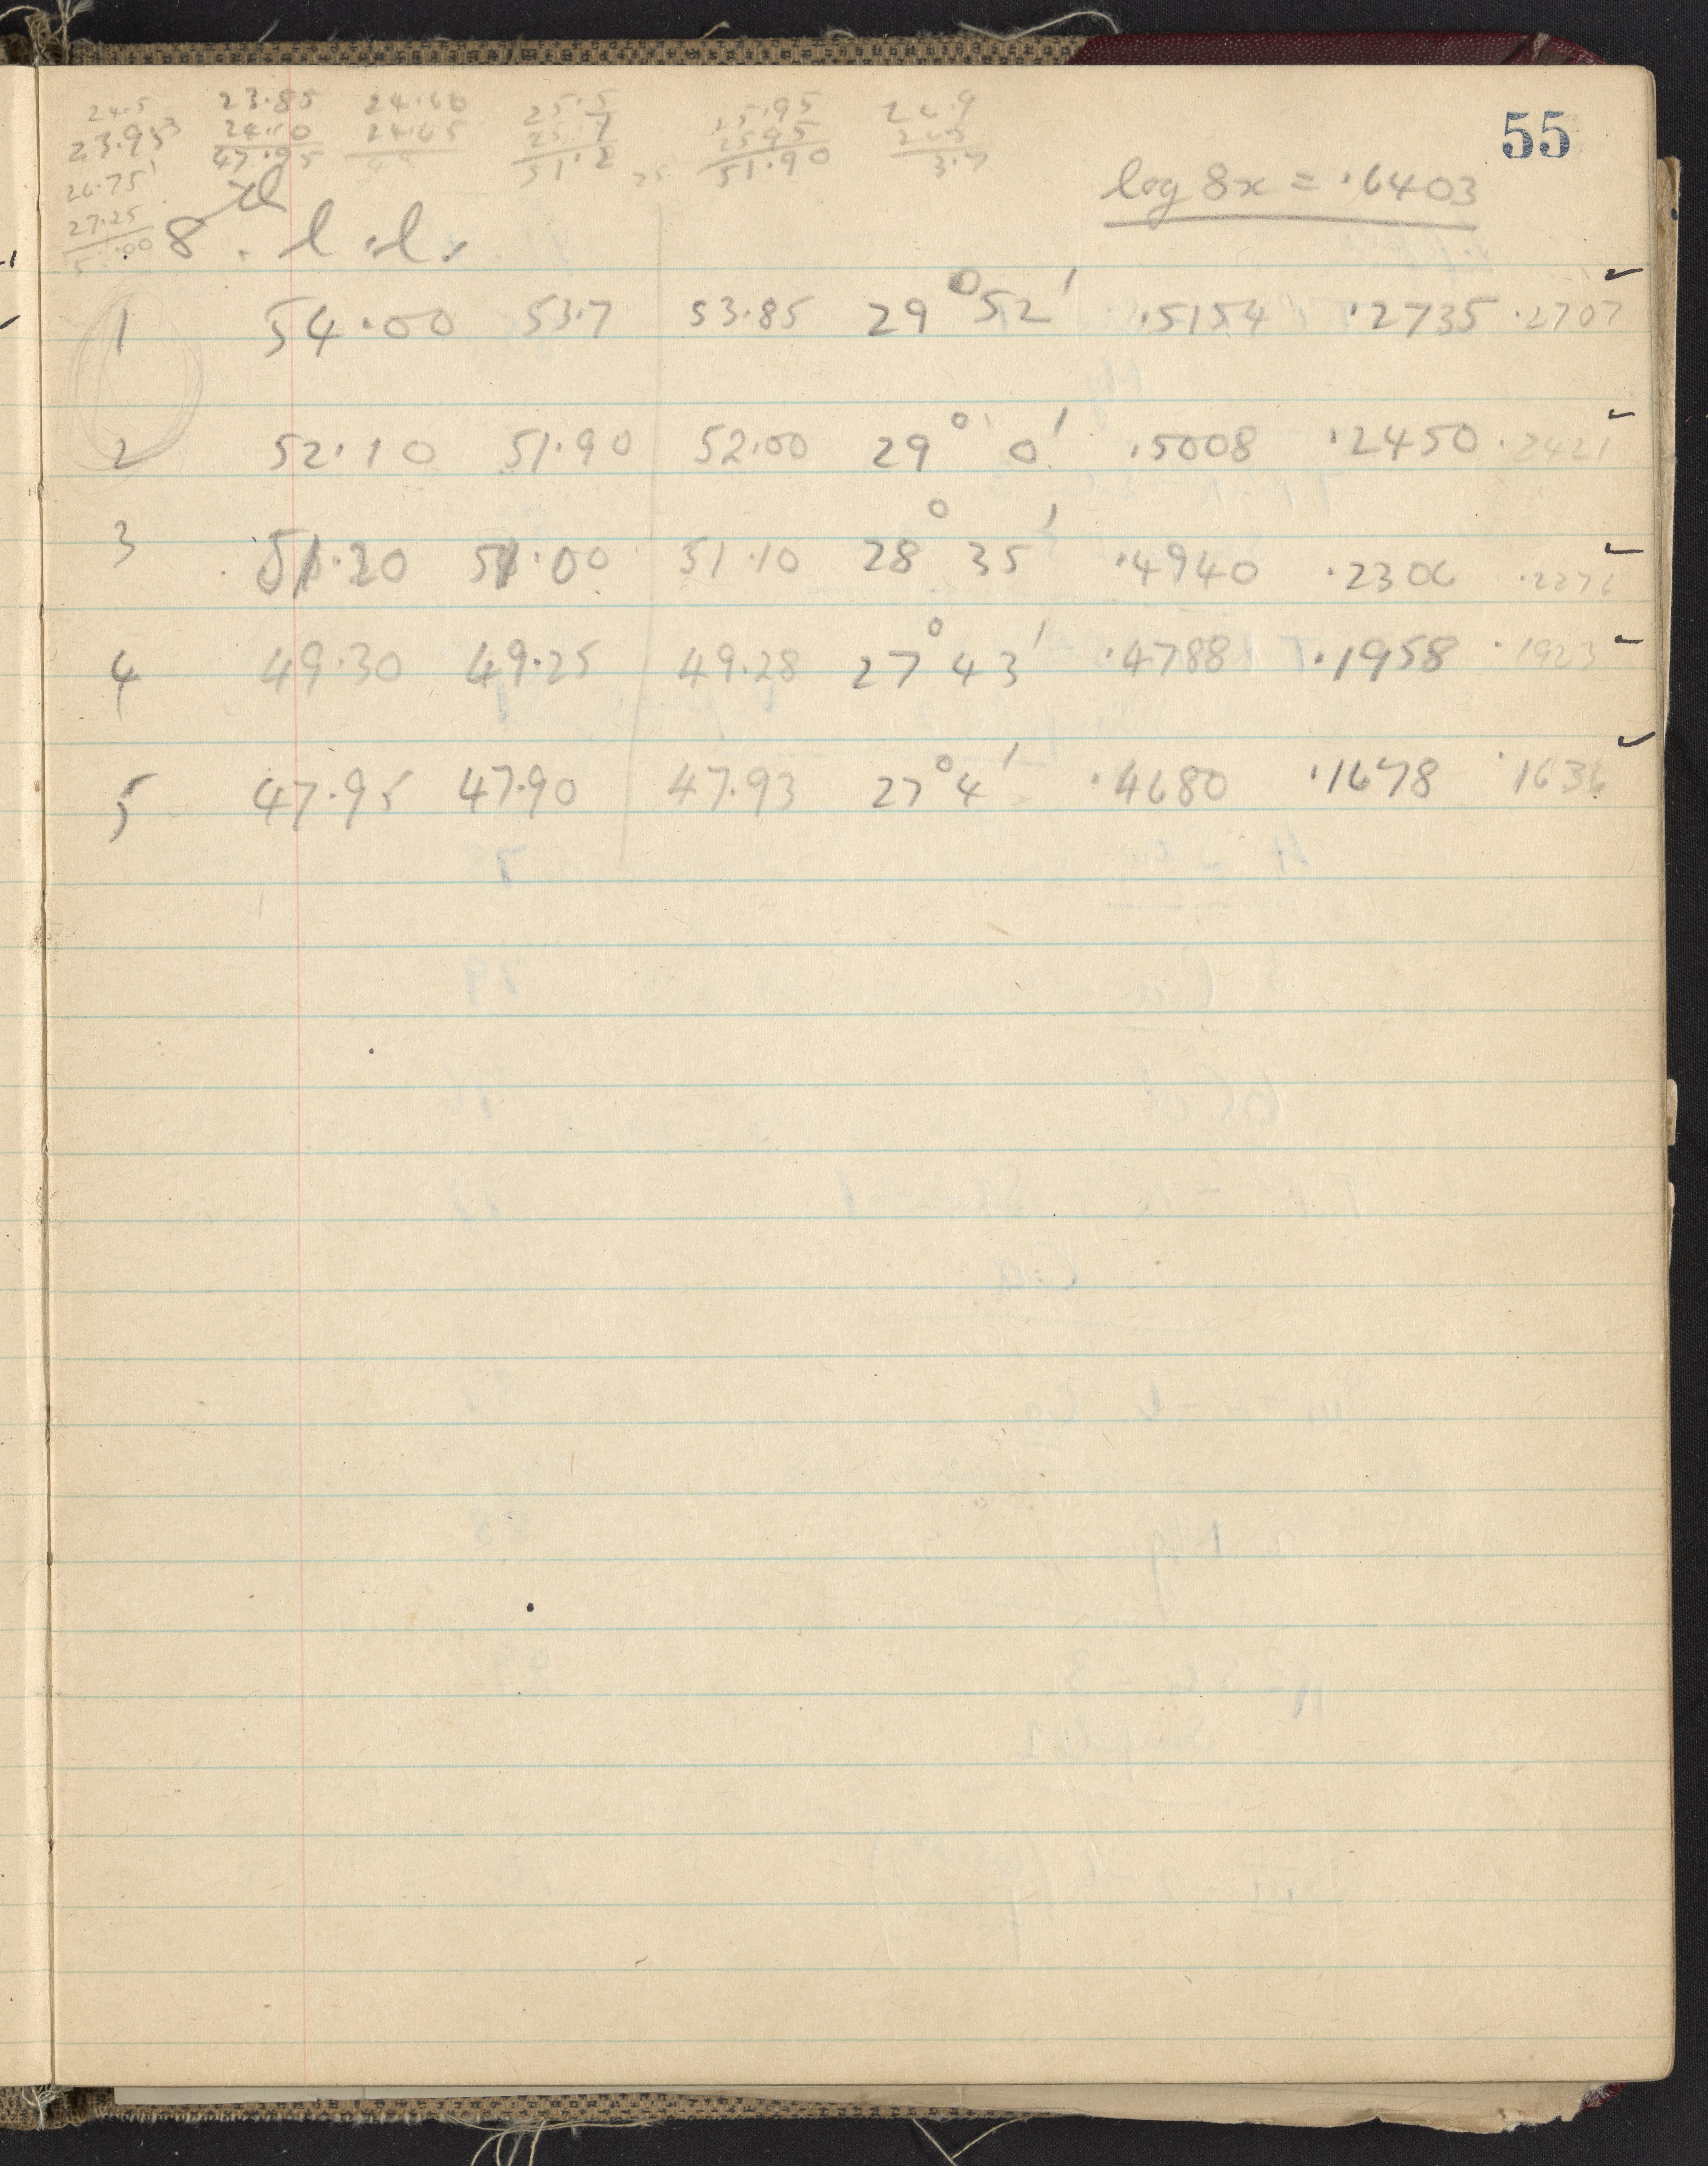 55
24.5 23.85 24.60 25.5 25.95 26.9
23.95 24.10 24.65 25.7 25.95
47.95 49 51.2 51.90 3.7
26.75
27.25
.00
log 8x = .6403
8
1 54.00 53.7 53.85 29° 52' .5154 .2735 .2707 ✓
2 52.10 51.90 52.00 29° 0' .5008 .2450 .2421 ✓
3 51.20 51.00 51.10 28° 35' .4940 .2306 .2276 ✓
4 49.30 49.25 49.28 27° 43' .4788 .1958 .1923 ✓
5 47.95 47.90 47.93 27° 4' .4680 .1678 .1636 ✓